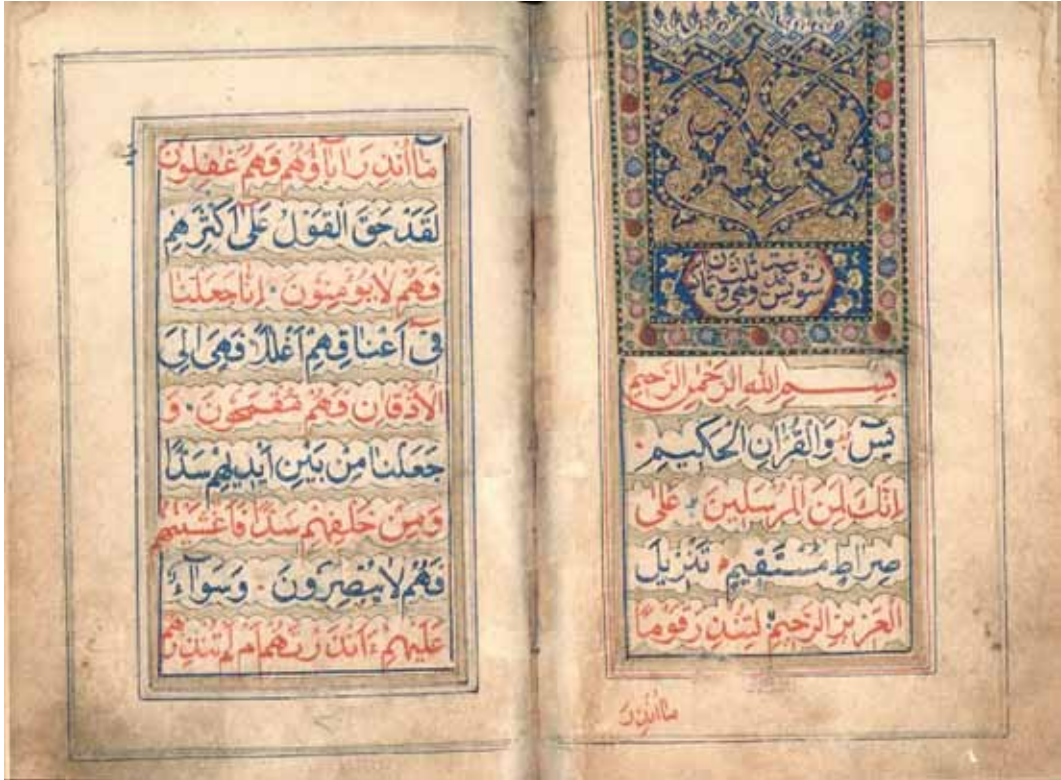 سوره يس وهي ثلث وثمانون
بِسْمِ اللهِ الرَّحْمٰنِ الرَّحِيمِ
يٰسٓ وَالْقُرْاٰنِ الْحَكِيمِ
اِنَّكَ لَمِنَ الْمُرْسَلِينَ عَلىٰ
صِرَاطٍ مُسْتَقِيمٍ تَنْزِيلَ
الْعَزِيزِ الرَّحِيمِ لِتُنْذِرَ قَوْمًا
مَا اُنْذِرَ
مَٓا اُنْذِرَ اٰبَٓاؤُهُمْ فَهُمْ غٰفِلُونَ
لَقَدْ حَقَّ الْقَوْلُ عَلٰٓى اَكْثَرِهِمْ
فَهُمْ لَا يُؤْمِنُونَ اِنَّا جَعَلْنَا
فِٓى اَعْنَاقِهِمْ اَغْلٰلًا فَهِىَ اِلَى
الْاَذْقَانِ فَهُمْ مُقْمَحُونَ وَ
جَعَلْنَا مِنْ بَيْنِ اَيْدِيهِمْ سَدًّا
وَمِنْ خَلْفِهِمْ سَدًّا فَاَغْشَيْنٰهُمْ
فَهُمْ لَا يُبْصِرُونَ وَسَوَٓاءٌ
عَلَيْهِمْ ءَاَنْذَرْتَهُمْ اَمْ لَمْ تُنْذِرْهُمْ